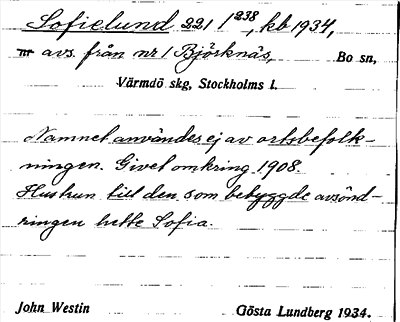 Sofielund 22 1 1 238, kb 1934,
avs. från nr 1 Björknäs, Bo sn,
Värmdö skg, Stockholms l.
Namnet användes ej av ortsbefolk-
ningen. Givet omkring 1908.
Hustrun till den som bebyggde avsönd-
ringen hette Sofia.
John Westin Gösta Lundberg 1934.